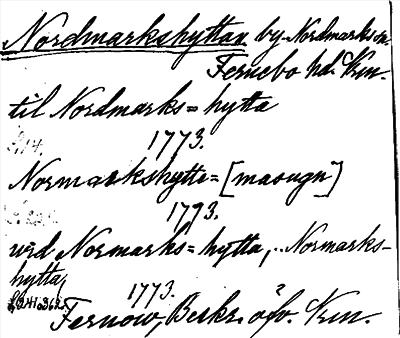 Nordmarkshyttan by Nordmarks sn.
Fernebo hd. Krm.
til Nordmarks=hytta
S. 14. 1773.
Normarkshytte=[masugn]
1773.
wid Normarks=hytta, .. Normarks-
hytta,
S. 241 o. 362. 1773.
Fernow, Beskr. öfv. Krm.